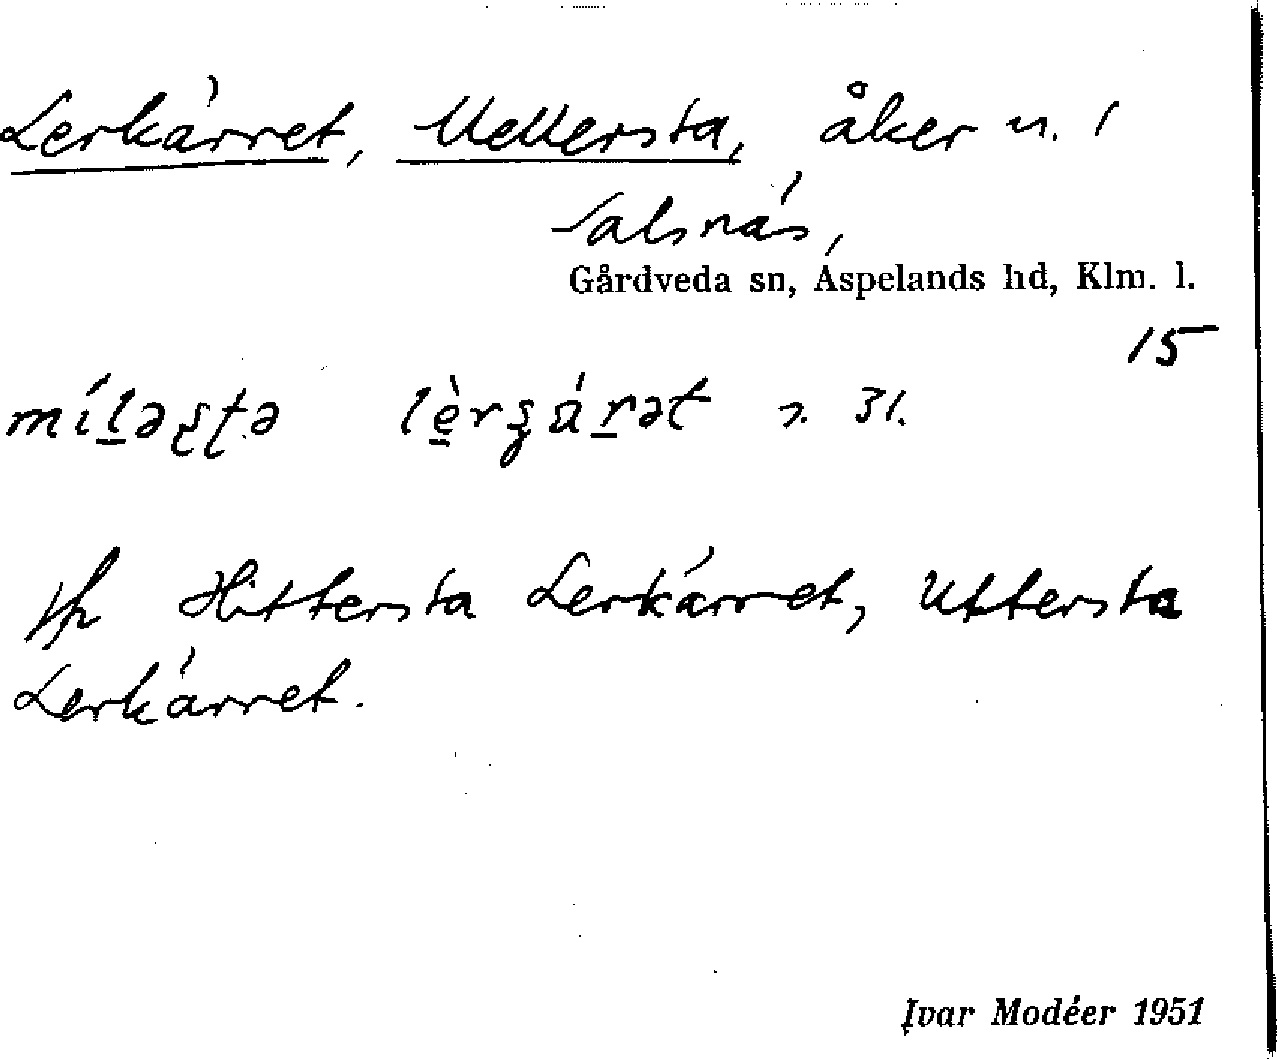 Lerkärret, Mellersta, åker n. i
Salsnäs,
Gårdveda sn, Aspelands hd, Klm. l.
15
31.
Hittersta Lerkärret, Uttersta
Lerkärret.
Ivar Modéer 1951